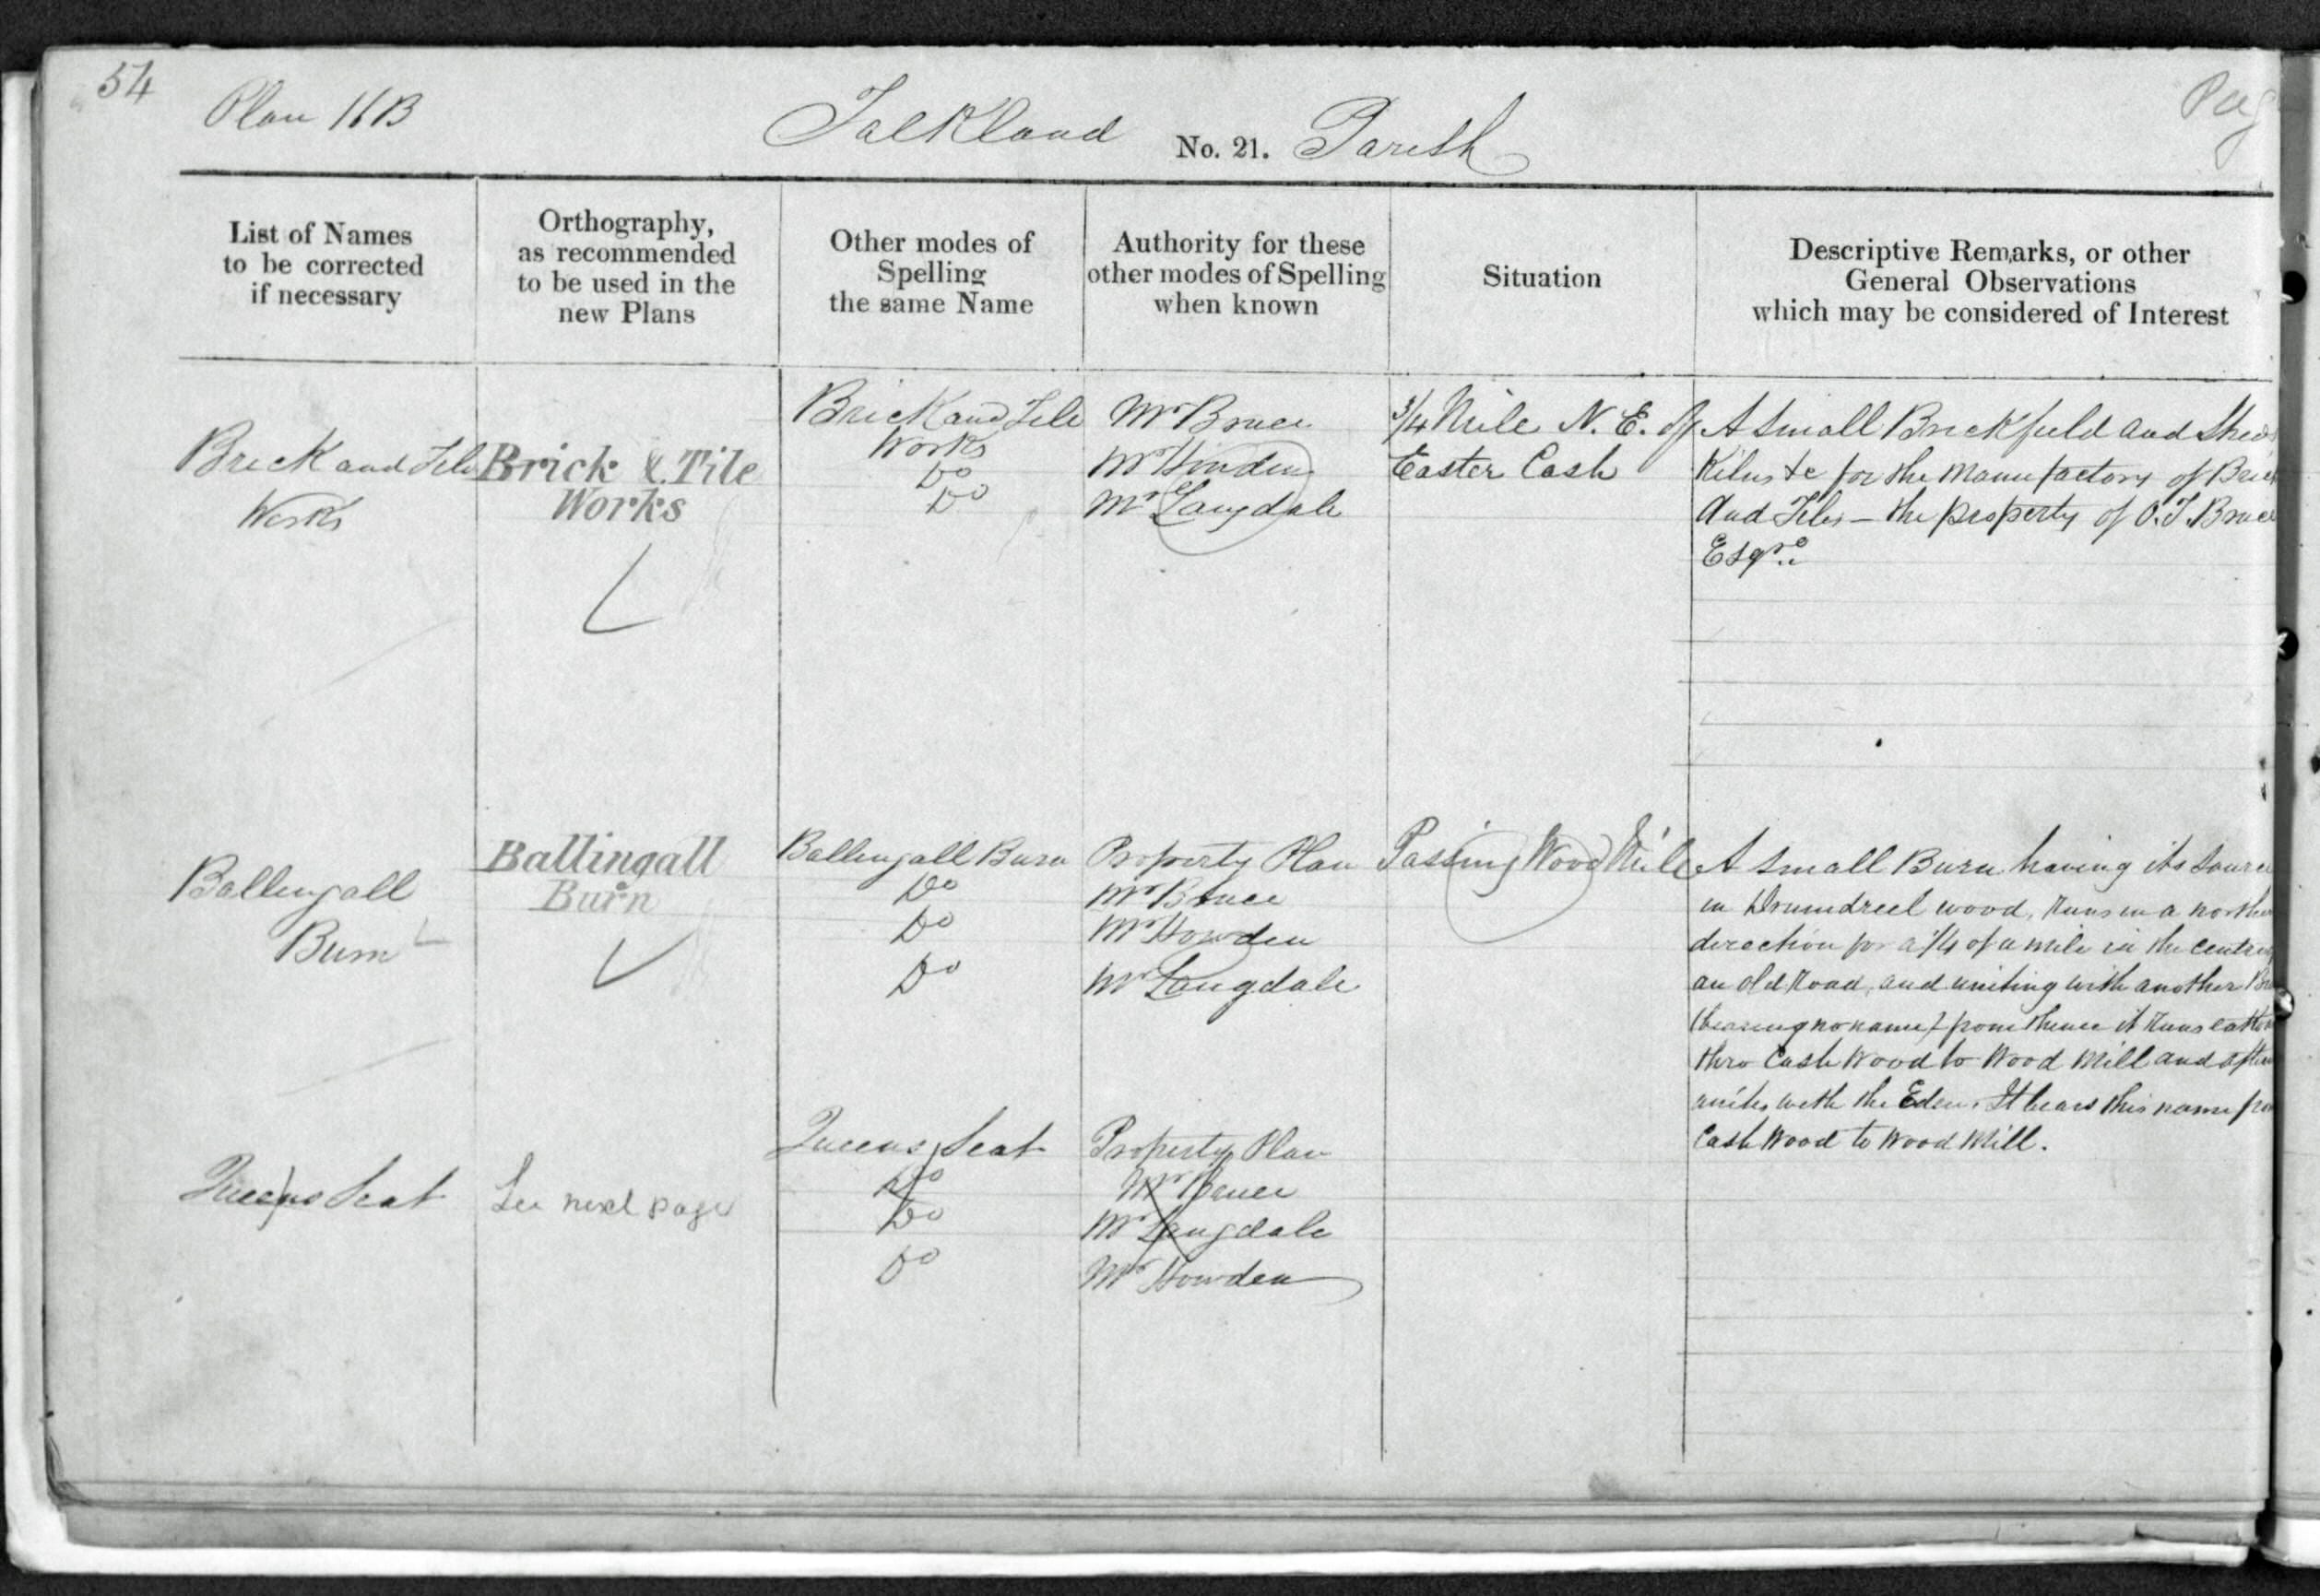 54
Plan 16B
Falkland No. 21. Parish
Pag
List of Names
to be corrected
if necessary
Orthography,
as recommended
to be used in the
new Plans
Other modes of
Spelling
the same Name
Authority for these
other modes of Spelling
when known
Situation
Descriptive Remarks, or other
General Observations
which may be considered of Interest
Brick and Tile
Works
Brick & Tile
Works
Brick and Tile
Works
Do
Do
Mr Bruce
Mr Howden
Mr Langdale
3/4 Mile N. E. of
Easter Cash
A Small Brickfield and Shed
Kilns &c for the Manufactory of Brick
And Tiles – the property of O.T. Bruce
Esqre.
Ballingall
Burn
Ballingall
Burn
Ballingall Burn
Do
Do
Do
Property Plan
Mr Bruce
Mr Howden
Mr Langdale
Passing Wood Mill
A Small Burn having its Source
in Drumdreel wood, Runs in a norther
direction for a 1/4 of a mile in the centre
an old Road, and uniting with another Bu
(bearing no name) from thence it Runs
thro Cash Wood to Wood Mill and after
unites with the Eden. It bears this name fro
Cash Wood to Wood Mill.
Queens Seat
See next page
Queens Seat
Do
Do
Do
Property Plan
Mr Bruce
Mr Langdale
Mr Howden